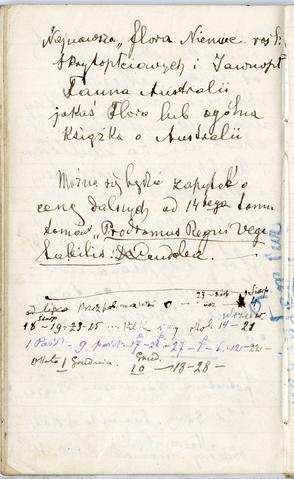 Najnowsza „ flora Niemiec. rośli
Skrytopłciowych i Jawnopł
Fauna Australii
jakaś Flora lub ogólna
książka o Australii
Można się będzie zapytać o
cenę dalszych od 14tego tomu
tomów „Prodromus Regni Vege
tabilis: DeCandolea.
od lipca
18 – 19 – 23 – 25 14 – 21
1 Paźd. 9 paźd. 17 – 22 – 27
1 Grudnia. Grud. 10 – 18 – 28 –